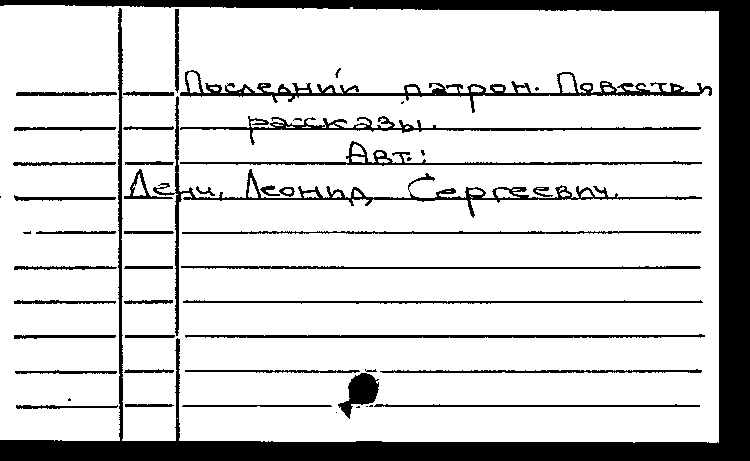 Последний патрон. Повесть и
рассказы.
Авт.:
Ленч, Леонид Сергеевич.